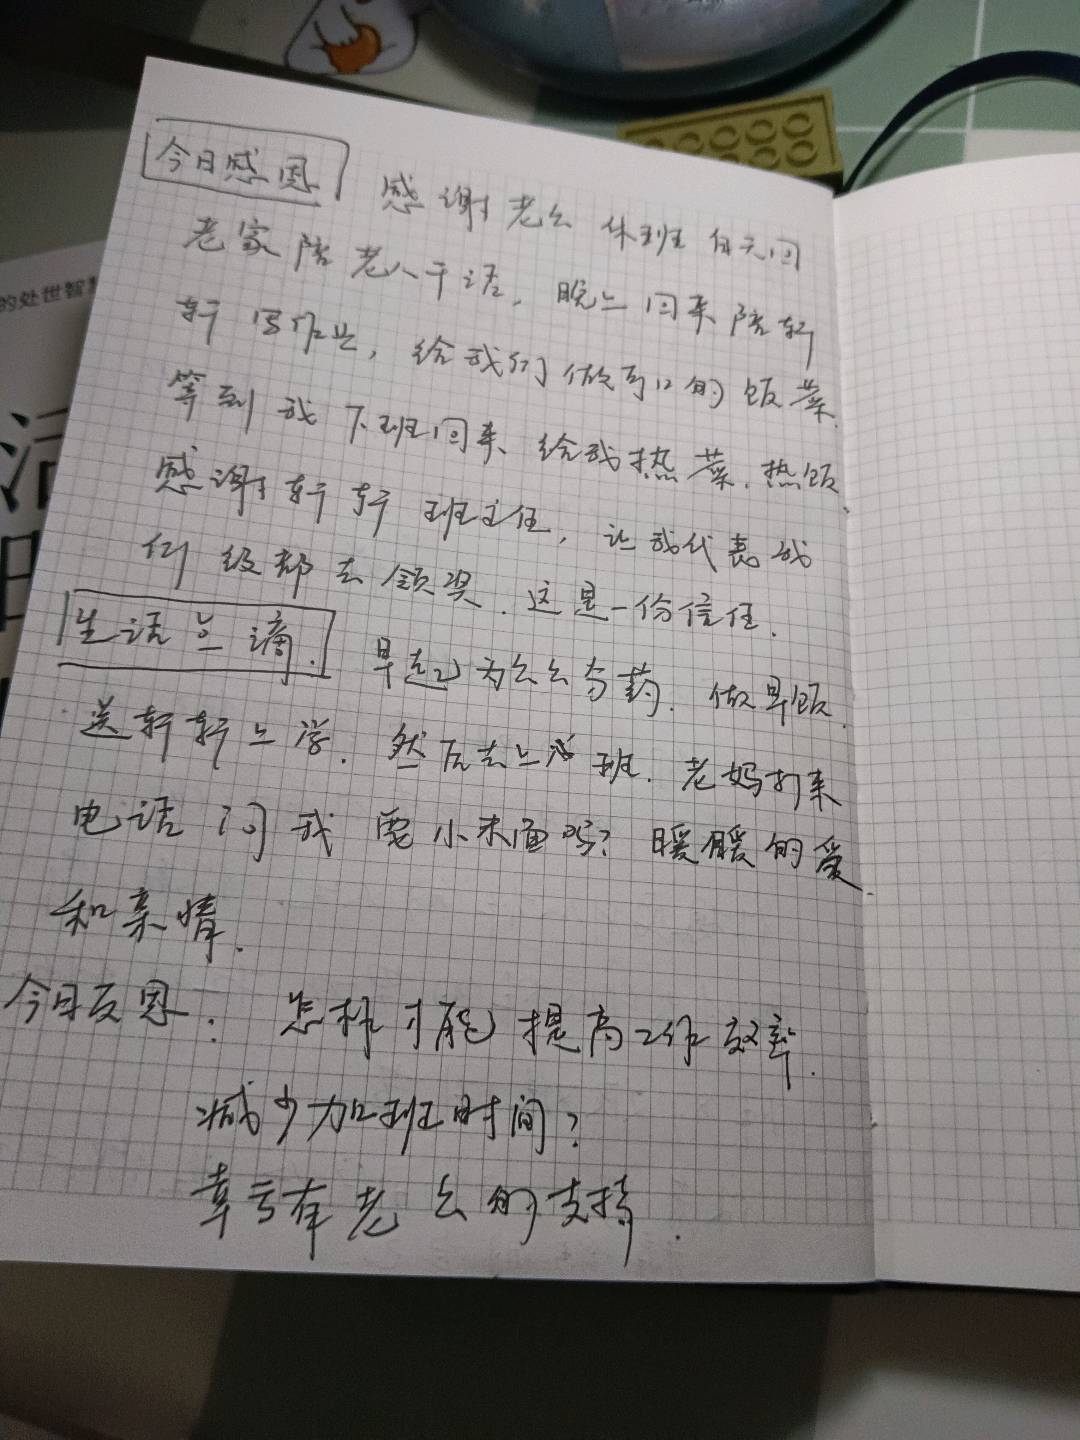 的处世智慧
今日感恩 感谢老公休班白天回
老家陪老人干活，晚上回来陪轩
轩写作业，给我们做可口的饭菜.
等到我下班回来、给我热菜.热饭
感谢轩轩班主任，让我代表我
们级部去领奖.这是一份信任.
生活点滴. 早起为公公熬药.做早饭.
送轩轩上学.然后去上班.老妈打来
电话问我要小米面吗？暖暖的爱
和亲情.
今日反思： 怎样才能提高工作效率.
减少加班时间？
幸亏有老公的支持.